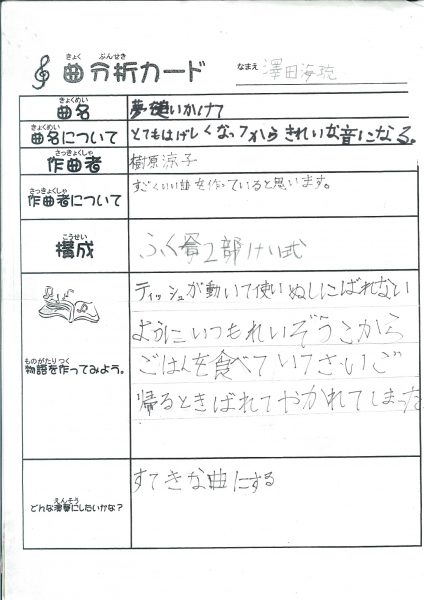 きょく ぶんせき
曲分析カード
なまえ 澤田海琉
きょくめい
曲名
夢を追いかけて
きょくめい
曲名について
とてもはげしくなってからきれいな音になる。
さっきょくしゃ
作曲者
樹原涼子
さっきょくしゃ
作曲者について
すごくいい曲を作っていると思います。
こうせい
構成
ふく合2部けい式
ものがたり つく
物語を作ってみよう。
ティッシュが動いて使いぬしにばれない
ようにいつもれいぞうこから
ごはんを食べていてさいご
帰るときばれてやかれてしまった
えんそう
どんな演奏にしたいかな?
すてきな曲にする